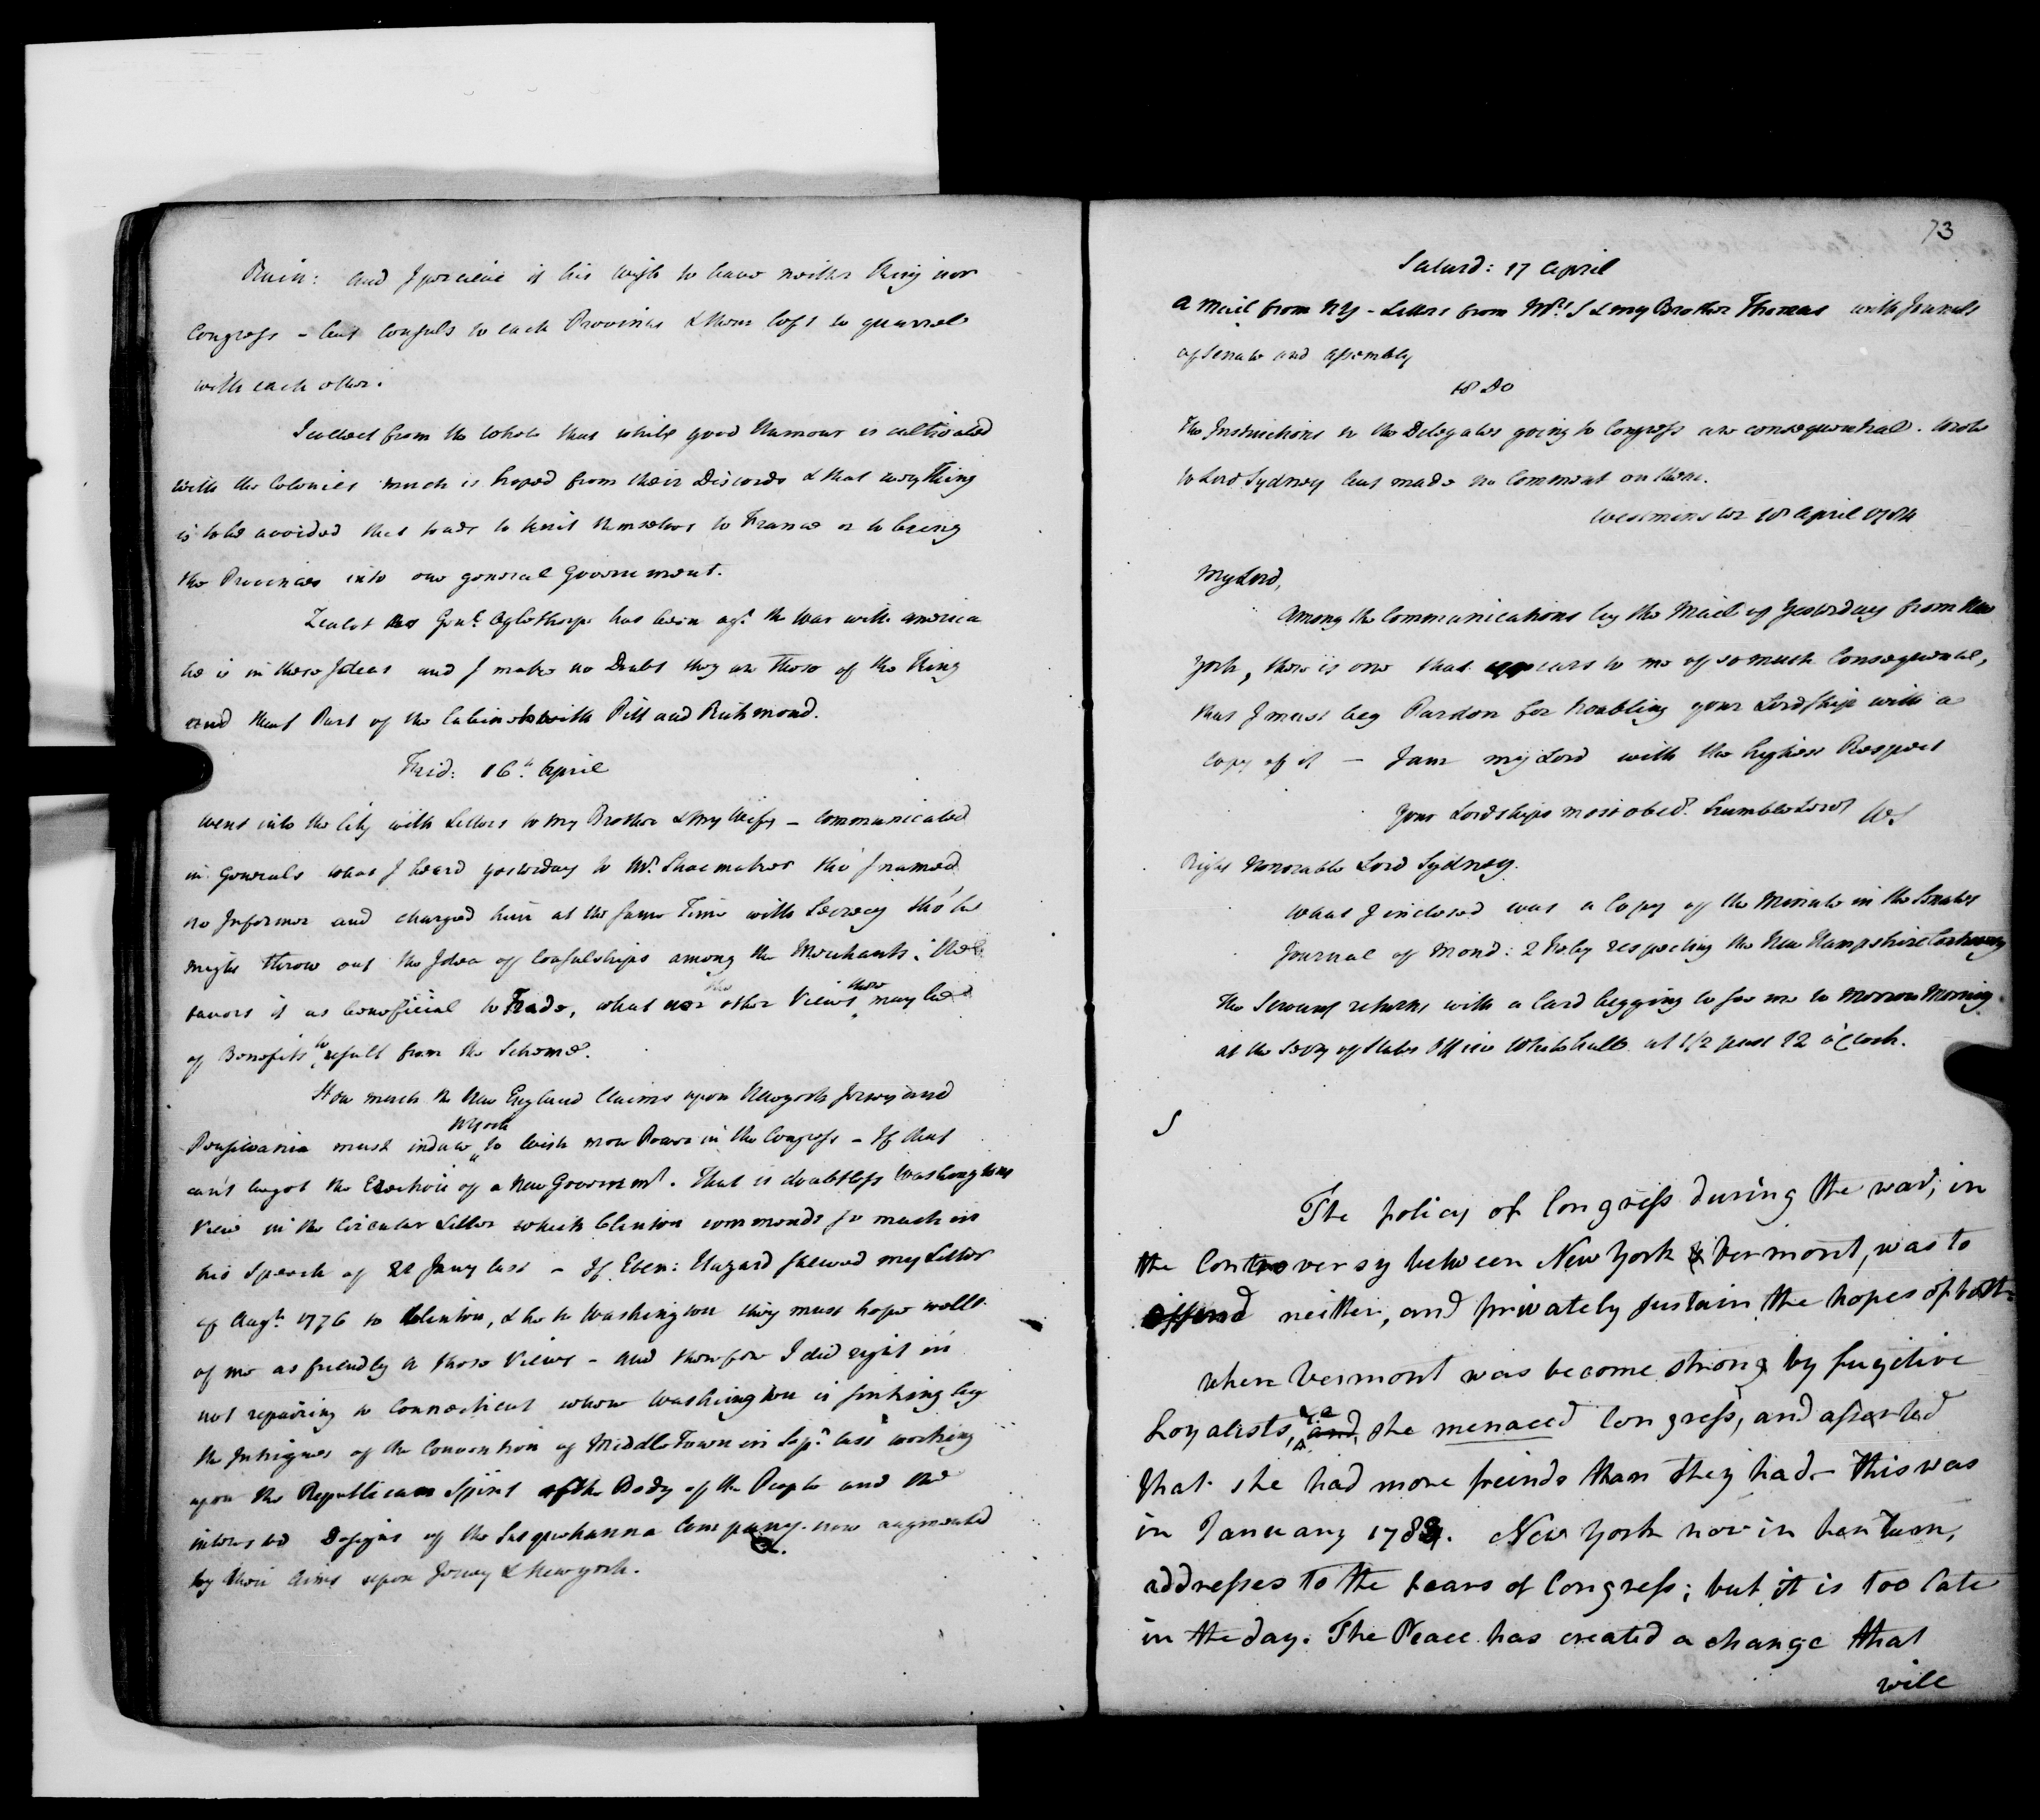 Ruin: and I perceive it his wish to have neither King nor
Congress – but Consuls to each Province & them left to quarrel
with each other.
I collect from the whole that while good Humour is cultivated
with the Colonies much is hoped from their Discords & that every Thing
is to be avoided that tends to knit themselves to France or to bring
the Provinces into one general Government.
Zealot as Genl. Oglethorpe has been agt. the War with America
he is in these Ideas and I make no Doubt they are those of the King
and that Part of the Cabinet with Pitt and Richmond.
Frid: 16th. April
Went into the City with Letters to my Brother & my Wife – communicated
in Generals what I heard yesterday to Mr. Shoemaker tho' I named
no Informer and charged him at the same Time with Secrecy tho' he
might throw out the Idea of Consulships among the Merchants. He
favors it as beneficial to Trade, what other Views there may be
of Benefits to result from the Scheme.
How much the New England Claims upon Newyork Jersey and
Pensilvania must induce NYork to wish more Power in the Congress – If that
can't be got the Erection of a New Governmt. That is doubtless Washingtons
View in the Circular Letter which Clinton commends so much in
his Speech of 21 Jany last – If Eben: Hazard shewed my Letter
of Augt. 1776 to Clinton, & he to Washington they must hope well
of me as friendly to those Views – and therefore I did right in
not repairing to Connecticut where Washington is sinking by
the Intrigues of the Convention of Middletown in Sepr. last working
upon the Republican Spirit of the Body of the People and the
interested Designs of the Susquehanna Company now augmented
by their Aims upon Jersey & Newyork.
73
Saturd: 17 April
A Mail from NY – Letters from Mrs. S & my Brother Thomas with Journals
of Senate and Assembly
18 Do
The Instructions to the Delegates going to Congress are consequential. Wrote
to Lord Sydney but made no Comment on them.
Westminster 18 April 1784
My Lord,
Among the Communications by the Mail of Yesterday from New
York, there is one that appears to me of so much Consequence,
that I must beg Pardon for troubling your Lordship with a
Copy of it – I am my Lord with the highest Respect
Your Lordships most obed. humble Servt WS
Right Honorable Lord Sydney.
What I inclosed was a Copy of the Minute in the Senates
Journal of Mond: 2 Feby respecting the New Hampshire Controversy
The Servant returns with a Card begging to see me to Morrow Morning
at the Secry of States Office Whitehall at 1/2 past 12 o'Clock.
S
The policy of Congress during the war, in
the Controversy between New York & Vermont, was to
offend neither, and privately sustain the hopes of both.
when Vermont was become strong by fugitive
Loyalists, &c and she menaced Congress, and asserted
that she had more freinds than they had – This was
in January 1783. New York now in her turn,
addresses to the fears of Congress; but it is too late
in the day. The Peace has created a change that
will